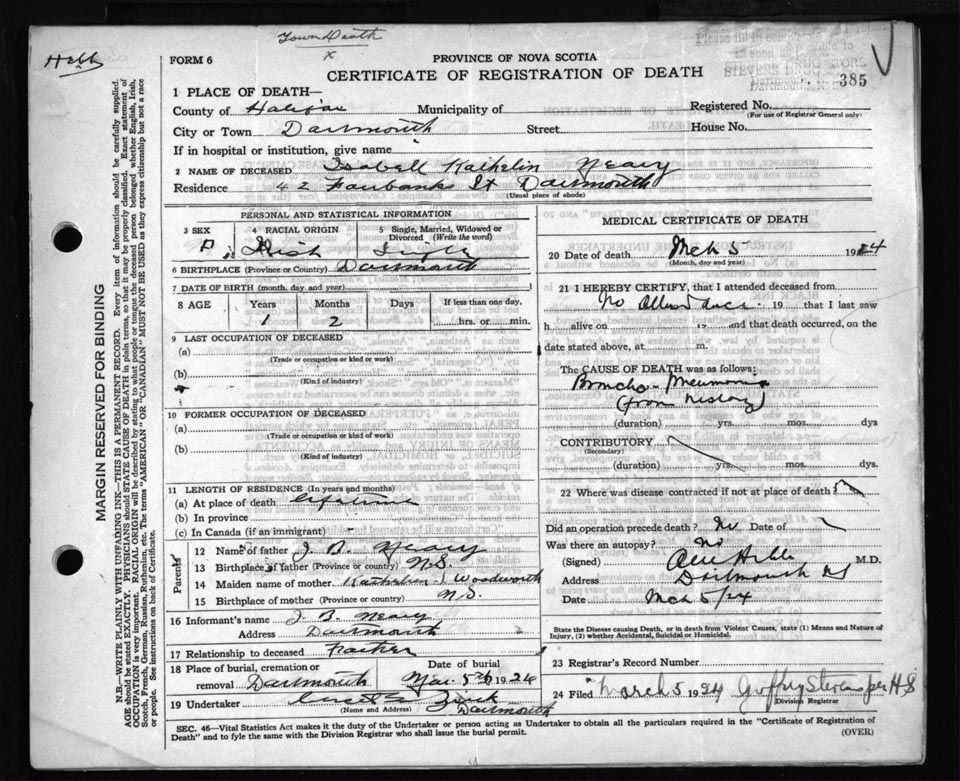 Town Death
x
Hebb
Please fill in complete
STEVENS DRUG STORE
Dartmouth, N.S.
385
FORM 6
PROVINCE OF NOVA SCOTIA
CERTIFICATE OF REGISTRATION OF DEATH
1 PLACE OF DEATH—
County of Halifax Municipality of Registered No.
(For use of Registrar General only)
City or Town Dartmouth Street House No.
If in hospital or institution, give name
2 NAME OF DECEASED Isabell Kathelin Neary
Residence 42 Fairbanks St Dartmouth
(Usual place of abode)
MARGIN RESERVED FOR BINDING
N.B.—WRITE PLAINLY WITH UNFADING INK—THIS IS A PERMANENT RECORD. Every item of information should be carefully supplied.
AGE should be stated EXACTLY. PHYSICIANS should STATE CAUSE OF DEATH in plain terms, so that it may be properly classified. Exact statement of
OCCUPATION is very important. RACIAL ORIGIN will be described by stating to what people or tongue the deceased person belonged whether English, Irish,
Scotch, French, German, Russian, Ruthenian, etc. The terms "AMERICAN" OR "CANADIAN" MUST NOT BE USED as they express citizenship but not a race
or people. See instructions on back of Certificate.
PERSONAL AND STATISTICAL INFORMATION
3 SEX 4 RACIAL ORIGIN 5 Single, Married, Widowed or
Divorced (Write the word)
Irish Single
6 BIRTHPLACE (Province or Country) Dartmouth
7 DATE OF BIRTH (month, day and year)
8 AGE Years Months Days If less than one day,
1 2 hrs. or min.
9 LAST OCCUPATION OF DECEASED
(a)
(Trade or occupation or kind of work)
(b)
(Kind of industry)
10 FORMER OCCUPATION OF DECEASED
(a)
(Trade or occupation or kind of work)
(b)
(Kind of industry)
11 LENGTH OF RESIDENCE (In years and months)
(a) At place of death lifetime
(b) In province
(c) In Canada (if an immigrant)
Parents
12 Name of father J. B. Neary
13 Birthplace of father (Province or country) N.S.
14 Maiden name of mother Kathelen J Woodworth
15 Birthplace of mother (Province or country) N.S.
16 Informant's name J. B. Neary
Address Dartmouth
17 Relationship to deceased Father
18 Place of burial, cremation or Date of burial
removal Dartmouth Mar. 5th 1924
19 Undertaker Zink
(Name and Address) Dartmouth
MEDICAL CERTIFICATE OF DEATH
20 Date of death Mch 5 1924
(Month, day and year)
21 I HEREBY CERTIFY, that I attended deceased from
No Attendance 19 that I last saw
h alive on 19 and that death occurred, on the
date stated above, at m.
The CAUSE OF DEATH was as follows:
Broncho-Pneumonia
(from history)
(duration) yrs. mos. dys
CONTRIBUTORY
(Secondary)
(duration) yrs. mos. dys.
22 Where was disease contracted if not at place of death?
Did an operation precede death? No Date of
Was there an autopsy? No
(Signed) Hebb M.D.
Address Dartmouth NS
Date Mch 5/24
State the Disease causing Death, or in death from Violent Causes, state (1) Means and Nature of
Injury, (2) whether Accidental, Suicidal or Homicidal.
23 Registrar's Record Number
24 Filed March 5 1924 Goffry Stevens per H S
Division Registrar
SEC. 46—Vital Statistics Act makes it the duty of the Undertaker or person acting as Undertaker to obtain all the particulars required in the "Certificate of Registration of
Death" and to fyle the same with the Division Registrar who shall issue the burial permit. (OVER)